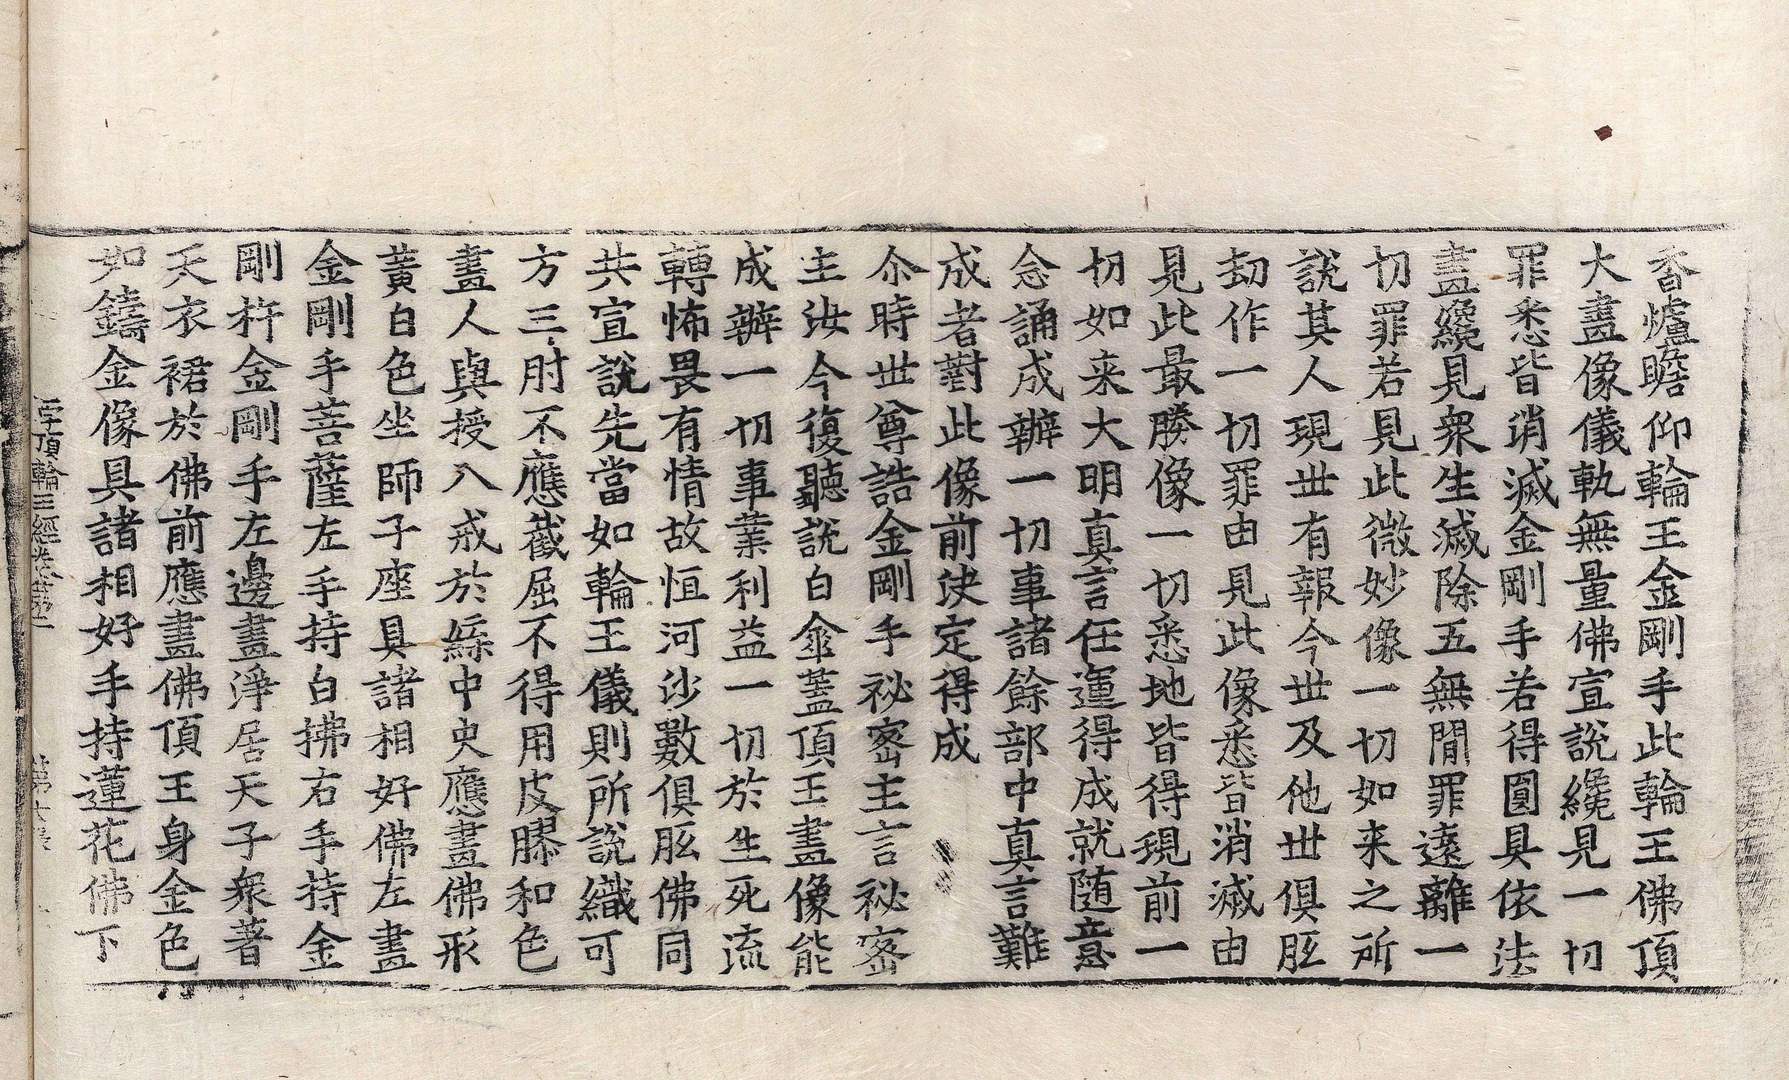 香爐瞻仰輪王金剛手此輪王佛頂
大畫像儀軌無量佛宣說纔見一切
罪悉皆消滅金剛手若得圓具依法
畫纔見衆生滅除五無間罪遠離一
切罪若見此微妙像一切如来之所
說其人現世有報今世及他世俱胝
劫作一切罪由見此像悉皆消滅由
見此最勝像一切悉地皆得現前一
切如来大明真言任運得成就随意
念誦成辦一切事諸餘部中真言難
成者對此像前决定得成
尒時世尊誥金剛手祕宻主言祕宻
主汝今復聽說白傘蓋頂王畫像能
成辦一切事業利益一切於生死流
轉怖畏有情故恒河沙數俱胝佛同
共宣說先當如輪王儀則所說織可
方三肘不應截屈不得用皮膠和色
畫人與授八戒於緤中央應畫佛形
黃白色坐師子座具諸相好佛左畫
金剛手菩薩左手持白拂右手持金
剛杵金剛手左邊畫淨居天子衆著
天衣裙於佛前應畫佛頂王身金色
如鑄金像具諸相好手持蓮花佛下
字頂輪王經卷第二